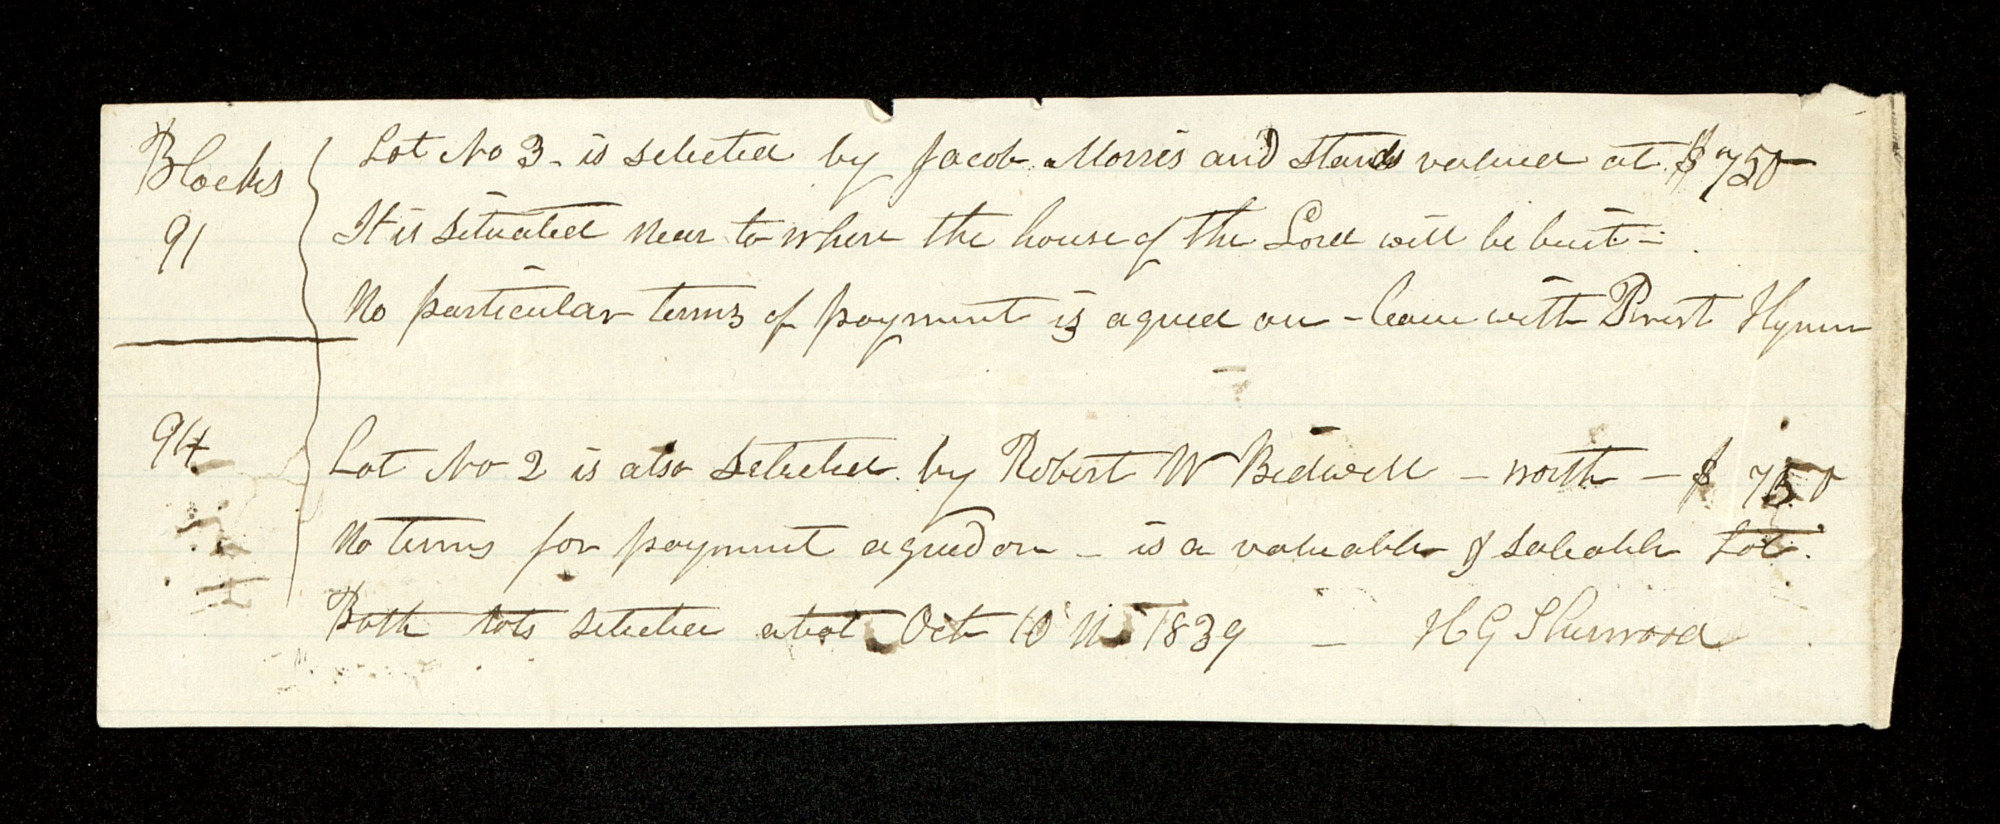 Blocks
91
Lot No 3 - is selected by Jacob Morris and stands valued at $750
It is situated near to where the house of the Lord will be buit -
No particular terms of payment is agreed on - leave with Hyrum
94
Lot No 2 is also selected by Robert W Bidwell - worth - $ 750
No terms for payment agreed on - is a valuable & saleable Lot.
Both lots selected Oct 10 1839 - H G Sherwood